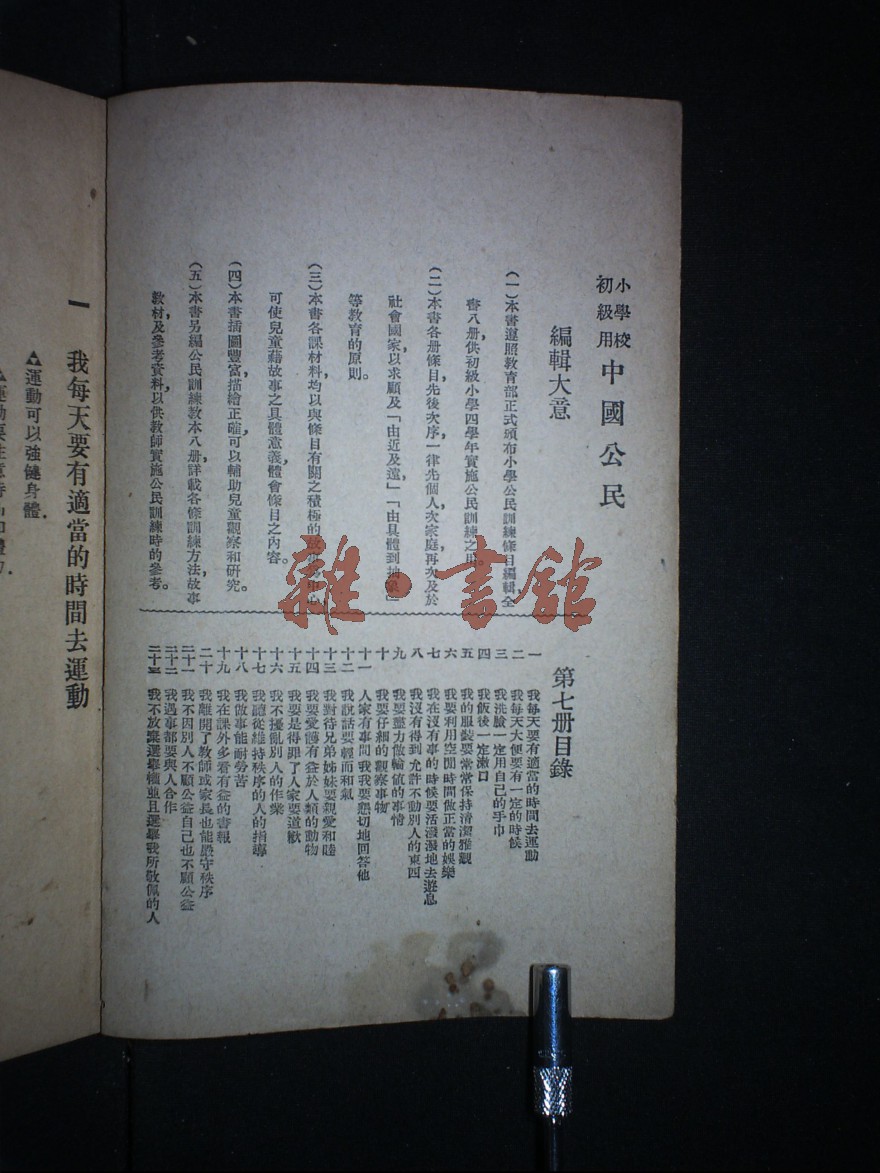 小學校
初級用
中國公民
編輯大意
(一)本書遵照教育部正式頒布小學公民訓練條目編輯全
書八册供初級小學四學年實施公民訓練之用。
(二)本書各册條目先後次序一律先個人,次家庭再次及於
社會國家以求顧及「由近及遠」「由具體到抽象」
等教育的原則。
(三)本書各課材料均以與條目有關之積極的故事爲中心
可使兒童藉故事之具體意義體會條目之內容。
(四)本書插圖豐富,描繪正確可以輔助兒童觀察和研究。
(五)本書另編公民訓練教本八册詳載各條訓練方法,故事
教材,及參考資料以供教師實施公民訓練時的參考。
第七册目錄
一 我每天要有適當的時間去運動
二 我每天大便要有一定的時候
三 我洗臉一定用自己的手巾
四 我飯後一定漱口
五 我的服裝要常常保持清潔雅觀
六 我要利用空閒時間做正當的娛樂
七 我在沒有事的時候要活潑潑地去遊息
八 我沒有得到允許不動別人的東西
九 我要盡力做輪值的事情
十 我要仔細的觀察事物
十一 人家有事問我我要懇切地回答他
十二 我說話要輕而和氣
十三 我對待兄弟姊妹要親愛和睦
十四 我要愛護有益於人類的動物
十五 我要是得罪了人家要道歉
十六 我不擾亂別人的作業
十七 我聽從維持秩序的人的指導
十八 我做事能耐勞苦
十九 我在課外多看有益的書報
二十 我離開了教師或家長也能嚴守秩序
二十一 我不因別人不顧公益自己也不顧公益
二十二 我遇事都要與人合作
二十三 我不放棄選舉權並且選舉我所敬佩的人
一 我每天要有適當的時間去運動
△運動可以強健身體.
雜·書館